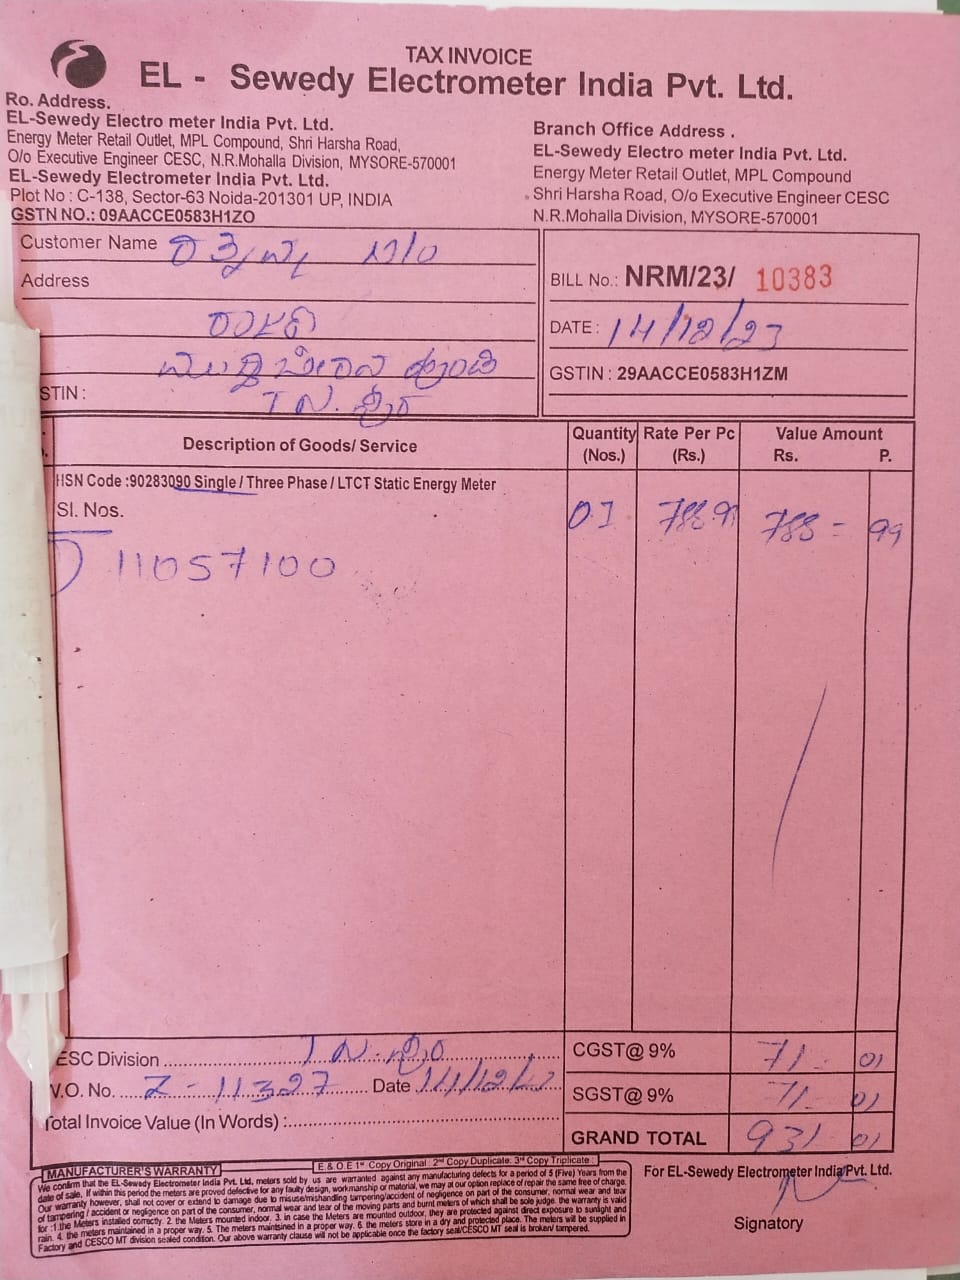 TAX INVOICE
EL - Sewedy Electrometer India Pvt. Ltd.
Ro. Address.
EL-Sewedy Electro meter India Pvt. Ltd.
Energy Meter Retail Outlet, MPL Compound, Shri Harsha Road,
O/o Executive Engineer CESC, N.R.Mohalla Division, MYSORE-570001
EL-Sewedy Electrometer India Pvt. Ltd.
Plot No : C-138, Sector-63 Noida-201301 UP, INDIA
GSTN NO.: 09AACCE0583H1ZO
Branch Office Address .
EL-Sewedy Electro meter India Pvt. Ltd.
Energy Meter Retail Outlet, MPL Compound
Shri Harsha Road, O/o Executive Engineer CESC
N.R.Mohalla Division, MYSORE-570001
Customer Name
Address
STIN :
BILL No.: NRM/23/ 10383
DATE : 14/12/23
GSTIN : 29AACCE0583H1ZM
Description of Goods/ Service
Quantity (Nos.)
Rate Per Pc (Rs.)
Value Amount
Rs. P.
HSN Code :90283090 Single / Three Phase / LTCT Static Energy Meter
Sl. Nos.
01 788.9 788 = 99
1) 11057100
ESC Division
V.O. No. Z - 11327 Date 14/12/
Total Invoice Value (In Words) :
CGST@ 9% 71 - 01
SGST@ 9% 71 - 01
GRAND TOTAL 931 - 01
E & O.E 1st Copy Original : 2nd Copy Duplicate: 3rd Copy Triplicate :
MANUFACTURER'S WARRANTY
We confirm that the EL-Sewedy Electrometer India Pvt. Ltd, meters sold by us are warranted against any manufacturing defects for a period of 5 (Five) Years from the
date of sale. If within this period the meters are proved defective for any faulty design, workmanship or material, we may at our option replace of repair the same free of charge.
Our warranty however, shall not cover or extend to damage due to misuse/mishandling tampering/accident of negligence on part of the consumer, normal wear and tear
of tampering / accident or negligence on part of the consumer, normal wear and tear of the moving parts and burnt meters of which shall be sole judge. the warranty is valid
for :1.the Meters installed correctly. 2. the Meters mounted indoor. 3. in case the Meters are mounted outdoor, they are protected against direct exposure to sunlight and
rain. 4. the meters maintained in a proper way. 5. The meters maintsined in a proper way. 6. the meters store in a dry and protected place. The meters will be supplied in
Factory and CESCO MT division sealed condition. Our above warranty clause will not be applicable once the factory seal/CESCO MT seal is broken/ tampered.
For EL-Sewedy Electrometer India Pvt. Ltd.
Signatory